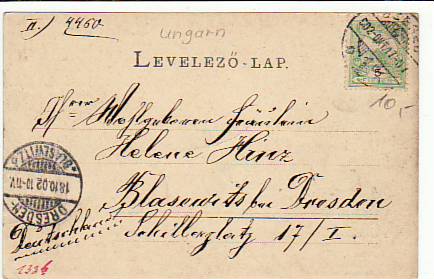 II.) 4460
Ungarn
LEVELEZŐ-LAP.
10,-
Ihrer Wohlgeboren Fräulein
Helene Hinz
Blasewitz bei Dresden
Schillerplatz 17/I.
Deutschland
DRESDEN-
*BLASEWITZ
18.10.02.10-11V.
1336